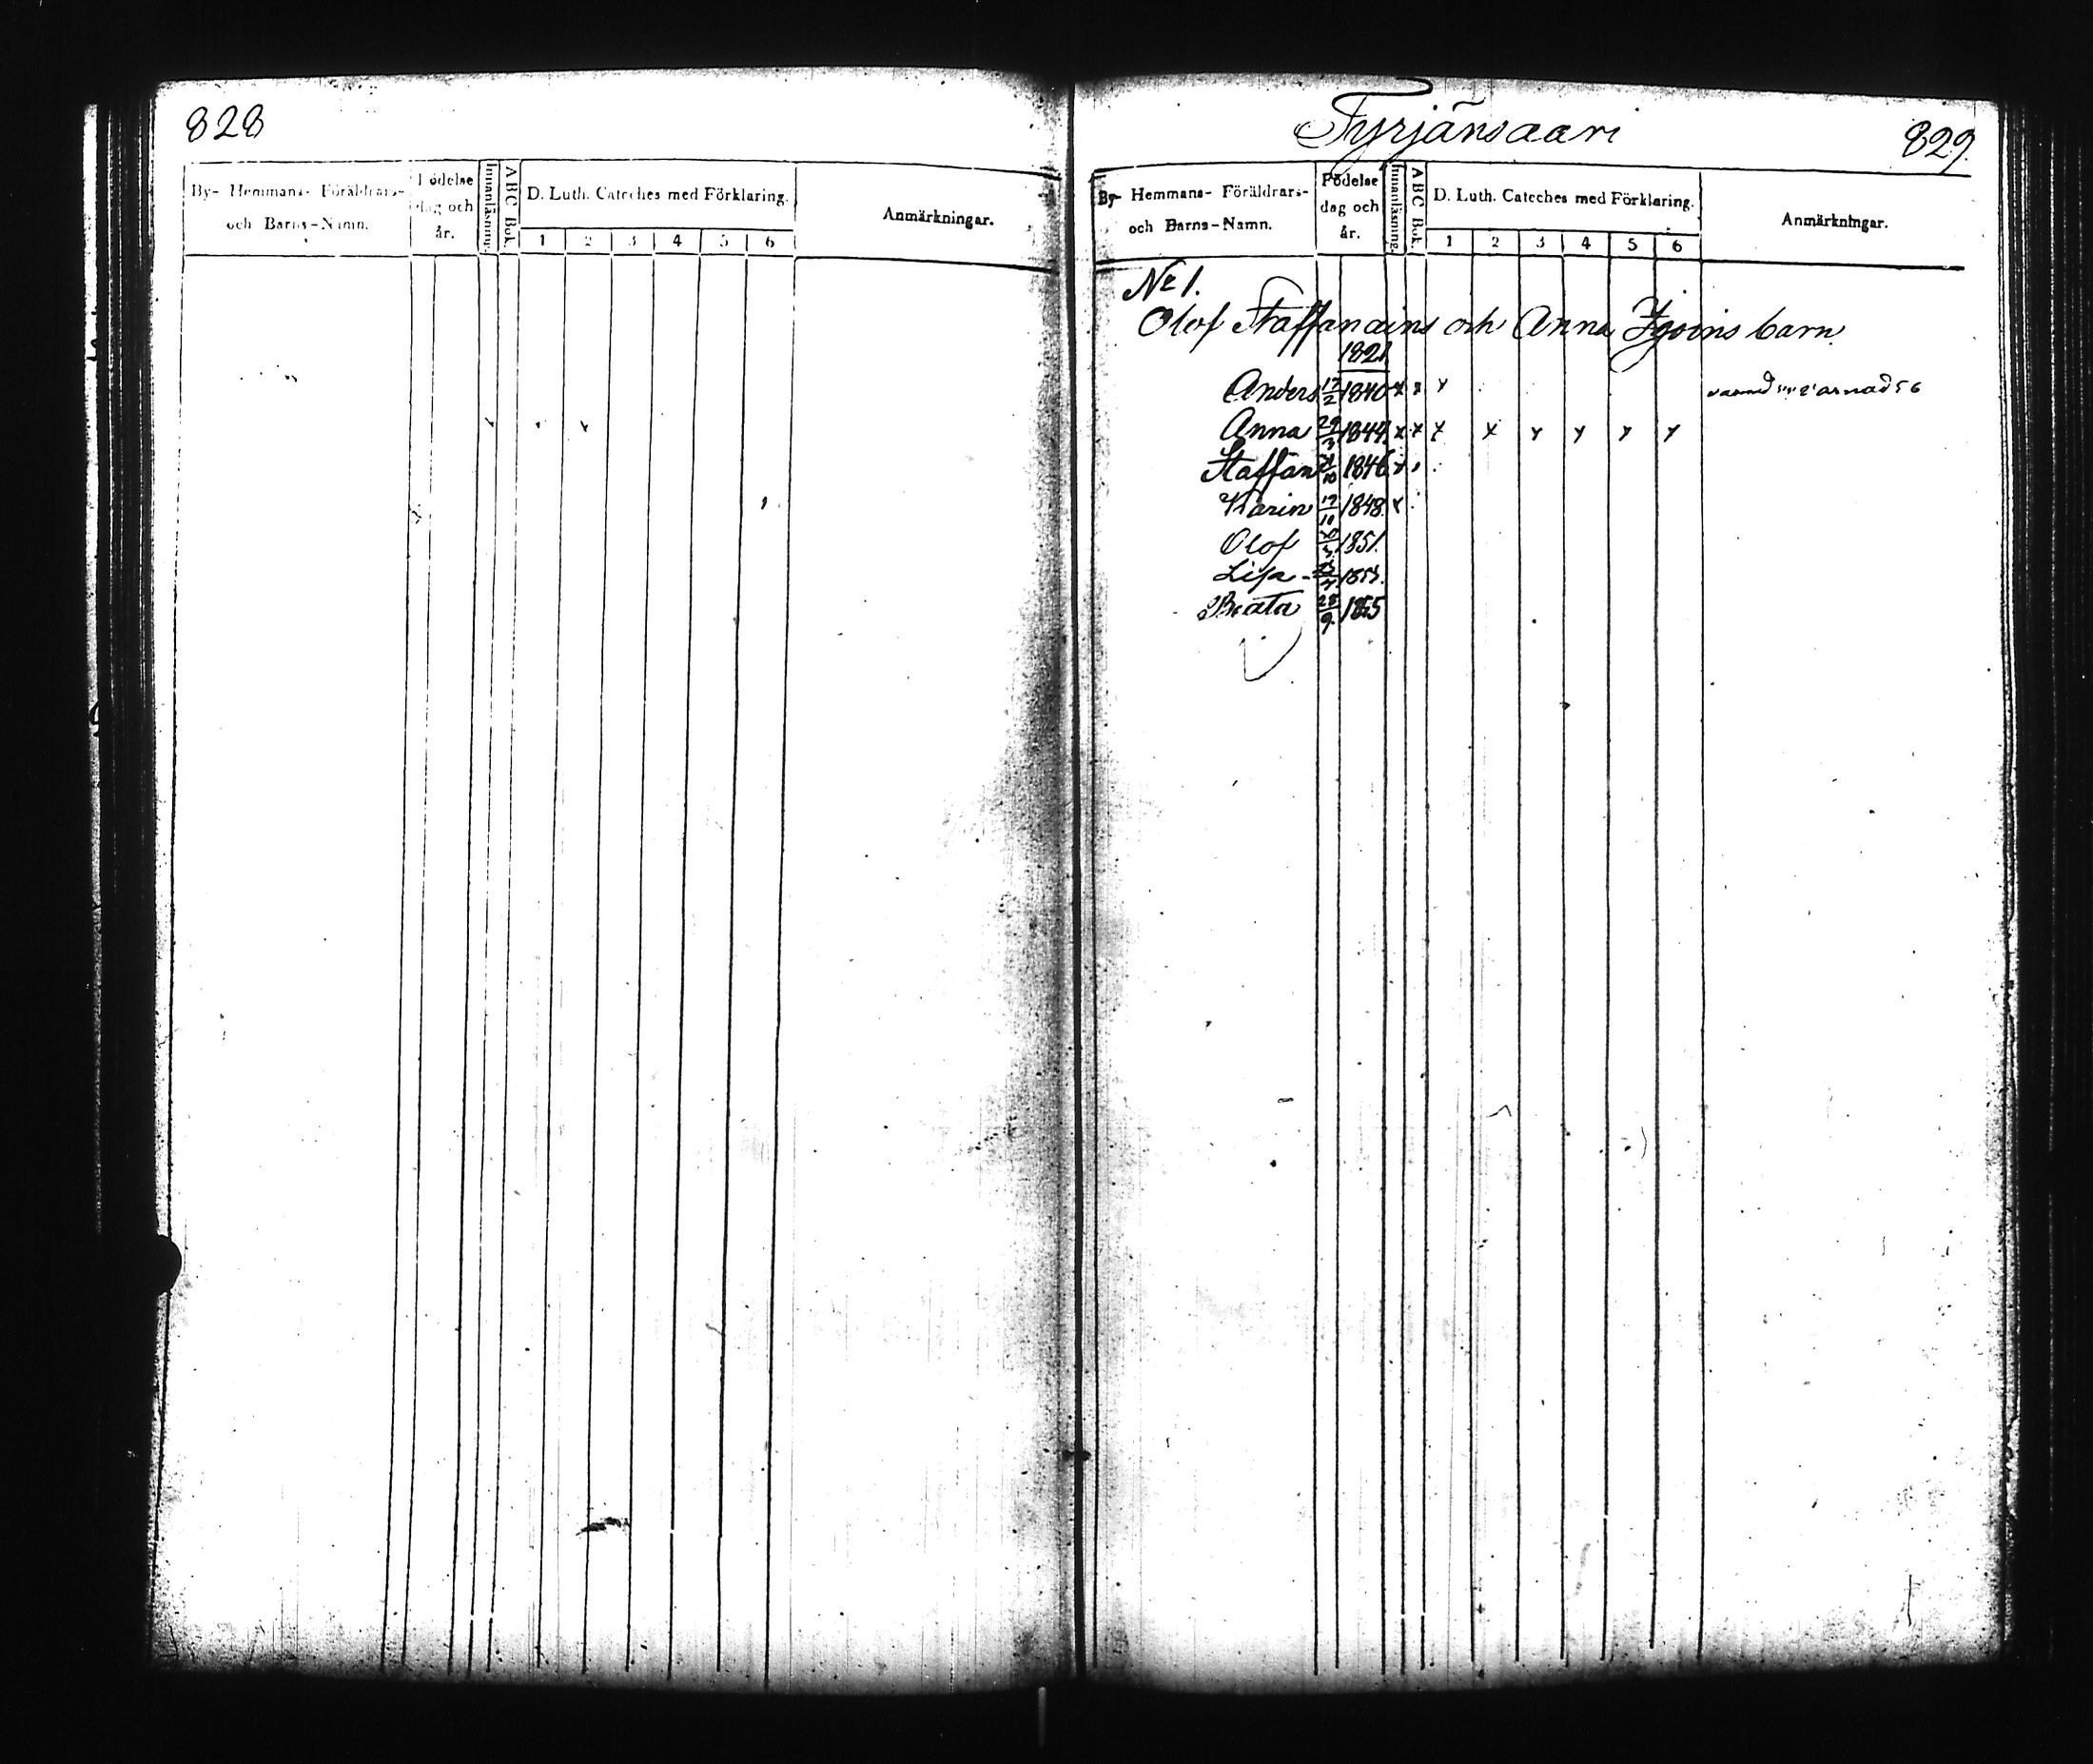 828
By- Hemmans- Föräldrars-
och Barns-Namn.
Födelse
dag och
år.
Innanläsning.
ABC Bok.
D. Luth. Cateches med Förklaring.
1 2 3 4 5 6
Anmärkningar.
Tyrjänsaari 829.
By- Hemmans- Föräldrars-
och Barns-Namn.
Födelse
dag och
år.
Innanläsning.
ABC Bok.
D. Luth. Cateches med Förklaring.
1 2 3 4 5 6
Anmärkningar.
No 1.
Olof Staffanains och Anna barn
1821
Anders 17/2 1840 x x x
Anna 29/3 1844 x x x x x x x x
Staffan 1846 x
Karin 17/11 1848 x
Olof 1851.
Lisa 1853.
Beata 28/9 1855